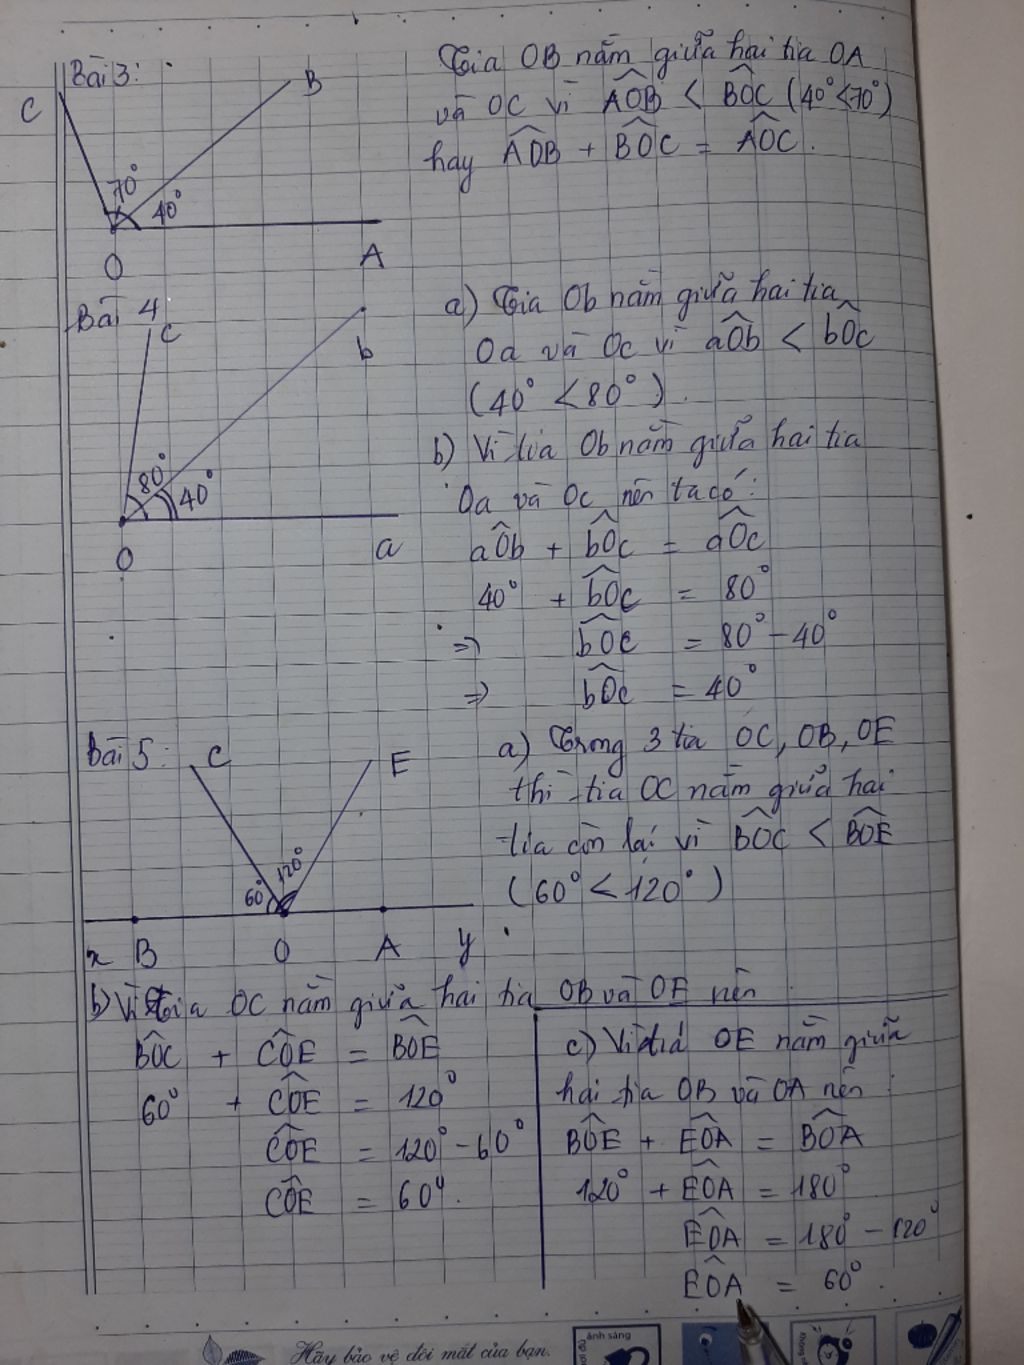 Bài 3:
C
B
70°
40°
O
A
Tia OB nằm giữa hai tia OA
và OC vì AOB < BOC (40° < 70°)
hay AOB + BOC = AOC.
Bài 4
c
b
80°
40°
O
a
a) Tia Ob nằm giữa hai tia
Oa và Oc vì aOb < bOc
(40° < 80°).
b) Vì tia Ob nằm giữa hai tia
Oa và Oc nên ta có:
aOb + bOc = aOc
40° + bOc = 80°
=> bOc = 80° - 40°
=> bOc = 40°
Bài 5:
C
E
60°
120°
x B O A y
a) Trong 3 tia OC, OB, OE
thì tia OC nằm giữa hai
tia còn lại vì BOC < BOE
(60° < 120°)
b) Vì tia OC nằm giữa hai tia OB và OE nên
BOC + COE = BOE
60° + COE = 120°
COE = 120° - 60°
COE = 60°.
c) Vì tiá OE nằm giữa
hai tia OB và OA nên:
BOE + EOA = BOA
120° + EOA = 180°
EOA = 180° - 120°
EOA = 60°.
Hãy bảo vệ đôi mắt của bạn.
ánh sáng